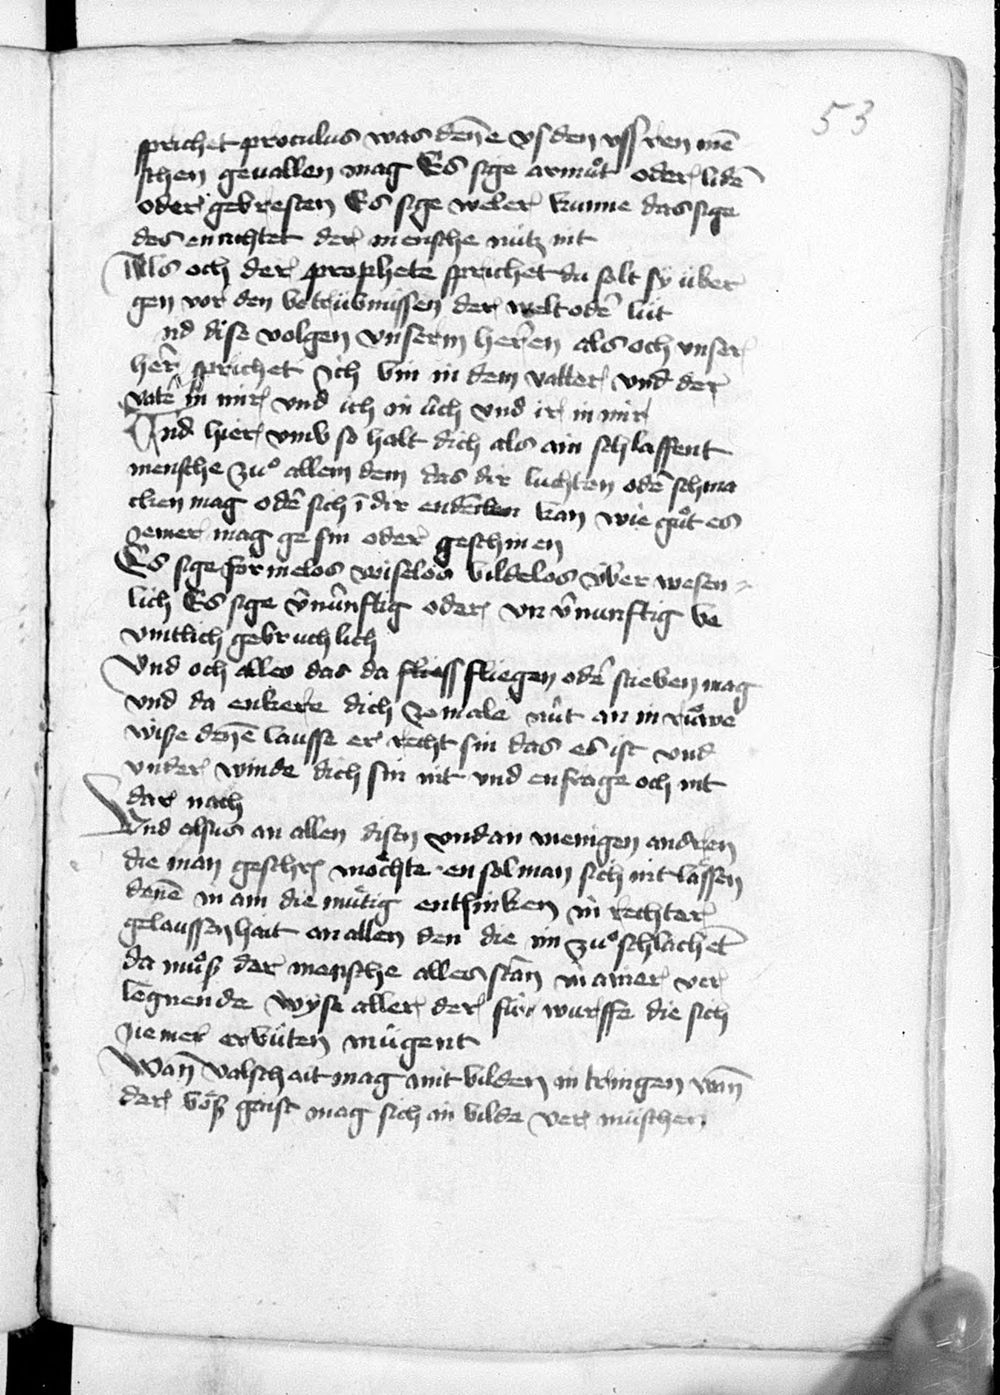 53
sprichet proculus was deñe vf den vssren mē
schen geuallen mag Es sige armůt oder lidē
oder gebresten Es sige weler kunne das sige
des enachtet der mensche nütz nit
Als och der prophete sprichet du solt sÿ über
gen vor den betrübnüssen der welt odē lüt
nd dise volgen vnserm herren als och vnser
her sprichet Ich bin in dem vatter vnd der
vatē in mir vnd ich in üch vnd ir in mir
Vnd hier vmb so halt dich als ain schlaffent
mensche zů allem dem das dir luchten odē schma
cken mag odē sich ī dir endeken kan wie gůt es
iemer mag ge sin oder geschinen
Es sige formelos wiselos bildelos über wesen
lich Es sige v̄nünftig oder vn v̄nunftig be
vintlich gebruchlich
Vnd och alles das da fliess fliegen odē stieben mag
vnd da enkere dich ze male nüt an in růwe
wise deñe lausse er recht sin das es ist vnd
vnder winde dich sin nit vnd enfrage och nit
dar nach
Vnd alsus an allen disen vnd an menigen andren
die man geschr möchte en sol man sich nit lässen
denē in ain die mütig entsinken in rechter
gelaussenhait an allen den die im zů schlachet
da můß der mensche alles stan in ainer ver
legnende wÿse aller der für wurffe die sich
iemer erbüten mügent
Wañ valschait mag mit bilden in bringen wañ
der böß gaist mag sich in bilde ver müschen